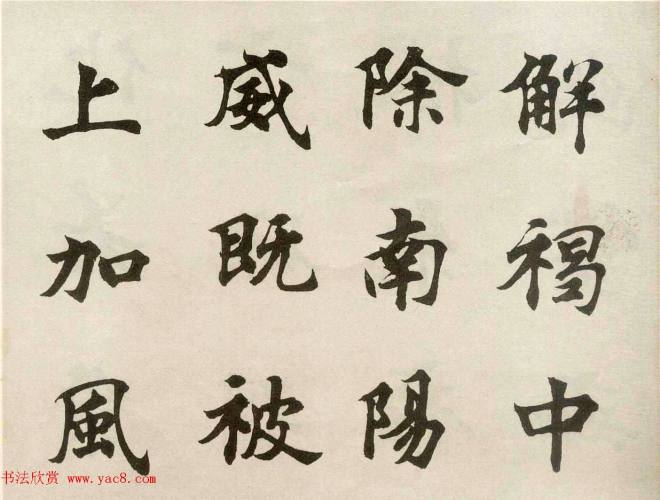 解褐中
除南陽
威既被
上加風
书法欣赏 www.yac8.com